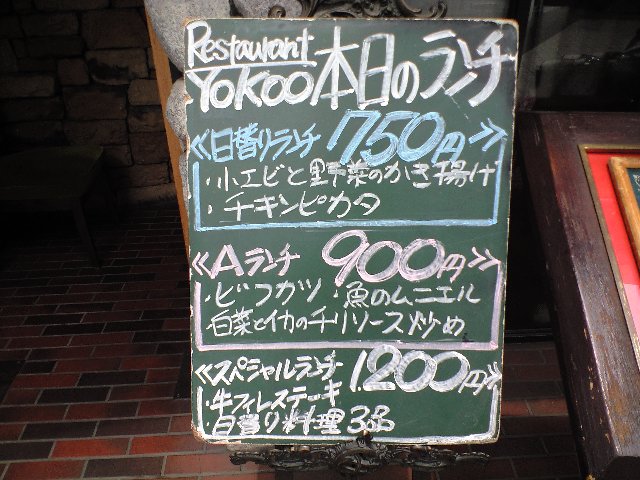 Restaurant
YOKOO 本日のランチ
≪日替りランチ 750円≫
・小エビと野菜のかき揚げ
・チキンピカタ
≪Aランチ 900円≫
・ビフカツ・魚のムニエル
白菜とイカのチリソース炒め
≪スペシャルランチ 1.200円≫
・牛フィレステーキ
・日替り料理3品